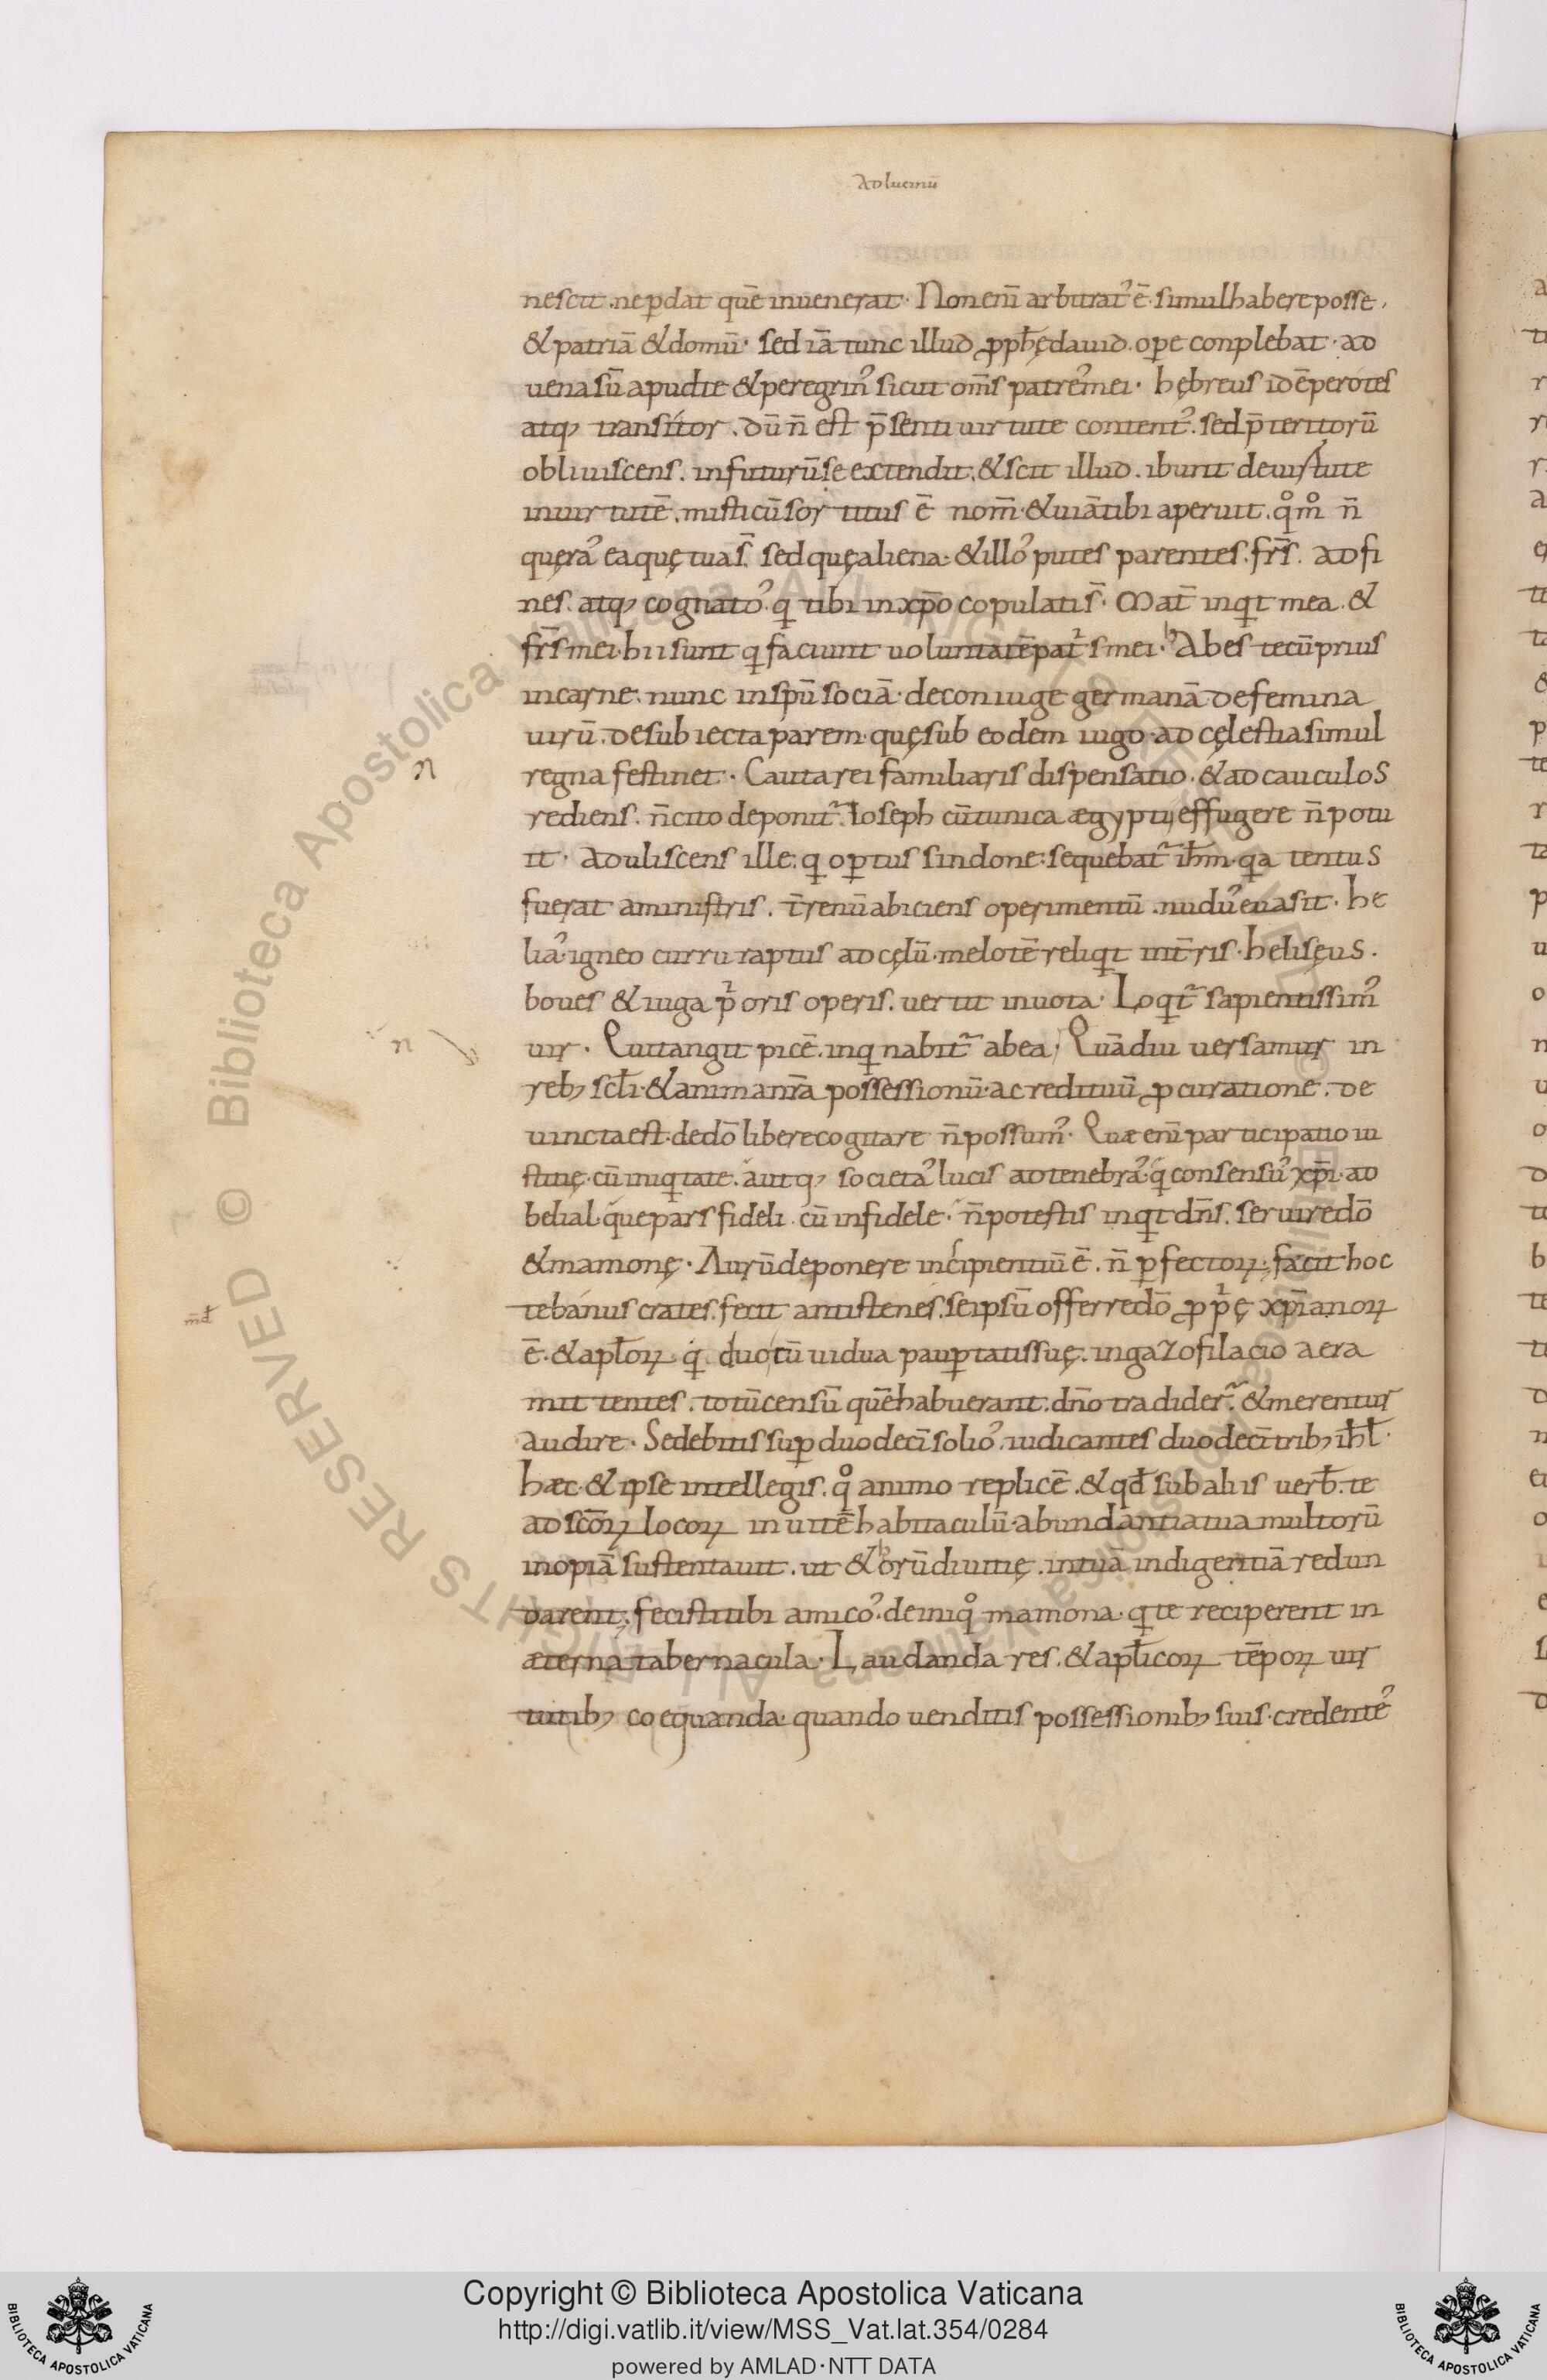 ad lucinū
nescit . ne ꝑdat quē inuenerat · Non eni͞ arbitrat᾽ ē simul habere posse ,
& patriā & domū · sed iā tunc illud ꝓpħę dauid . ope conplebat · ad
uena sū apud te & peregrin᾽ sicut om̄s patre᾽ mei · hębreus idē perotes
atq; transitor . dū n̄ est p̄senti uirtute content᾽ . sed p̄teritorū
obliuiscens . in futurū se extendit . & scit illud . ibunt de uirtute
in uirtutē . misticū sortitus ē nom̄ · & uiā tibi aperuit . q̊m̊ n̄
quęra᾽ ea quę tua s̄ . sed quę aliena · & illo᾽ putes parentes . fr̄s . adfi
nes . atq; cognato᾽ . q tibi in xp̄o copulati s̄ · Mat̄ inqt mea . &
fr̄s mei · hii sunt q faciunt uoluntatē patͥs mei · hAbes tecū prius
in carne . nunc in sp̄u sociā · de coniuge germanā de femina
uirū . de subiecta parem · quę sub eodem iugo · ad cęlestia simul
regna festinet · Cauta rei familiaris dispensatio . & ad cauculos
rediens . n̄ cito deponit᷑ . Ioseph cū tunica ægyptii effugere n̄ potu
it · Aduliscens ille . q optus sindone : sequebat᷑ ih̄m · qa tentus
fuerat a ministris . t̄renū abiciens operimentū . nudu᾽ euasit · he
lia᾽ · igneo curru raptus ad cęlū · melotē reliqt in t̄ris · heliseus .
boues & iuga pͥoris operis . uertit in uota · Loqt᷑ sapientissim᾽
uir . Qui tangit picē . inqnabit᷑ ab ea · Quādiu uersamur in
reb; scłi · & anima nr̄a possessionū · ac redituū ꝓcuratione . de
uincta est · de dō libere cogitare n̄ possum᾽ · Quæ eni͞ participatio iu
stitię · cū iniqtate . aut q; societa᾽ lucis ad tenebra᾽ . q consensu᾽ xp̄i · ad
belial · quę pars fideli . cū infidele · n̄ potestis inqt dn̄s . seruire dō
& mamonę · Aurū deponere incipientiū ē . n̄ ꝑfectoꝝ · facit hoc
tebanus crates . fecit antistenes . se ipsū offerre dō ꝓpͥę xp̄ianoꝝ
ē . & apłoꝝ q duo cū uidua pauꝑtatis suę . in gazofilacio aera
mittentes . totū censū quē habuerant . dn̄o tradider᷑ . & merentur
audire · Sedebitis suꝑ duodeci͞ solio᾽ . iudicantes duodeci͞ trib; ih̄ł .
hæc · & ipse intellegis . q̊ animo replicē . & qđ sub aliis uerƀ . te
ad scōꝝ locoꝝ inuitē habitaculū · abundantia tua multorū
inopiā sustentauit . ut & horū diuitię . in tuā indigentiā redun
darent . fecisti tibi amico᾽ . de iniq̊ mamona . q te reciperent in
æterna tabernacula · Laudanda res . & apłicoꝝ tēpoꝝ uir
tutib; coęquanda · quando uenditis possessionib; suis · credente᾽
Copyright © Biblioteca Apostolica Vaticana
http://digi.vatlib.it/view/MSS_Vat.lat.354/0284
powered by AMLAD·NTT DATA